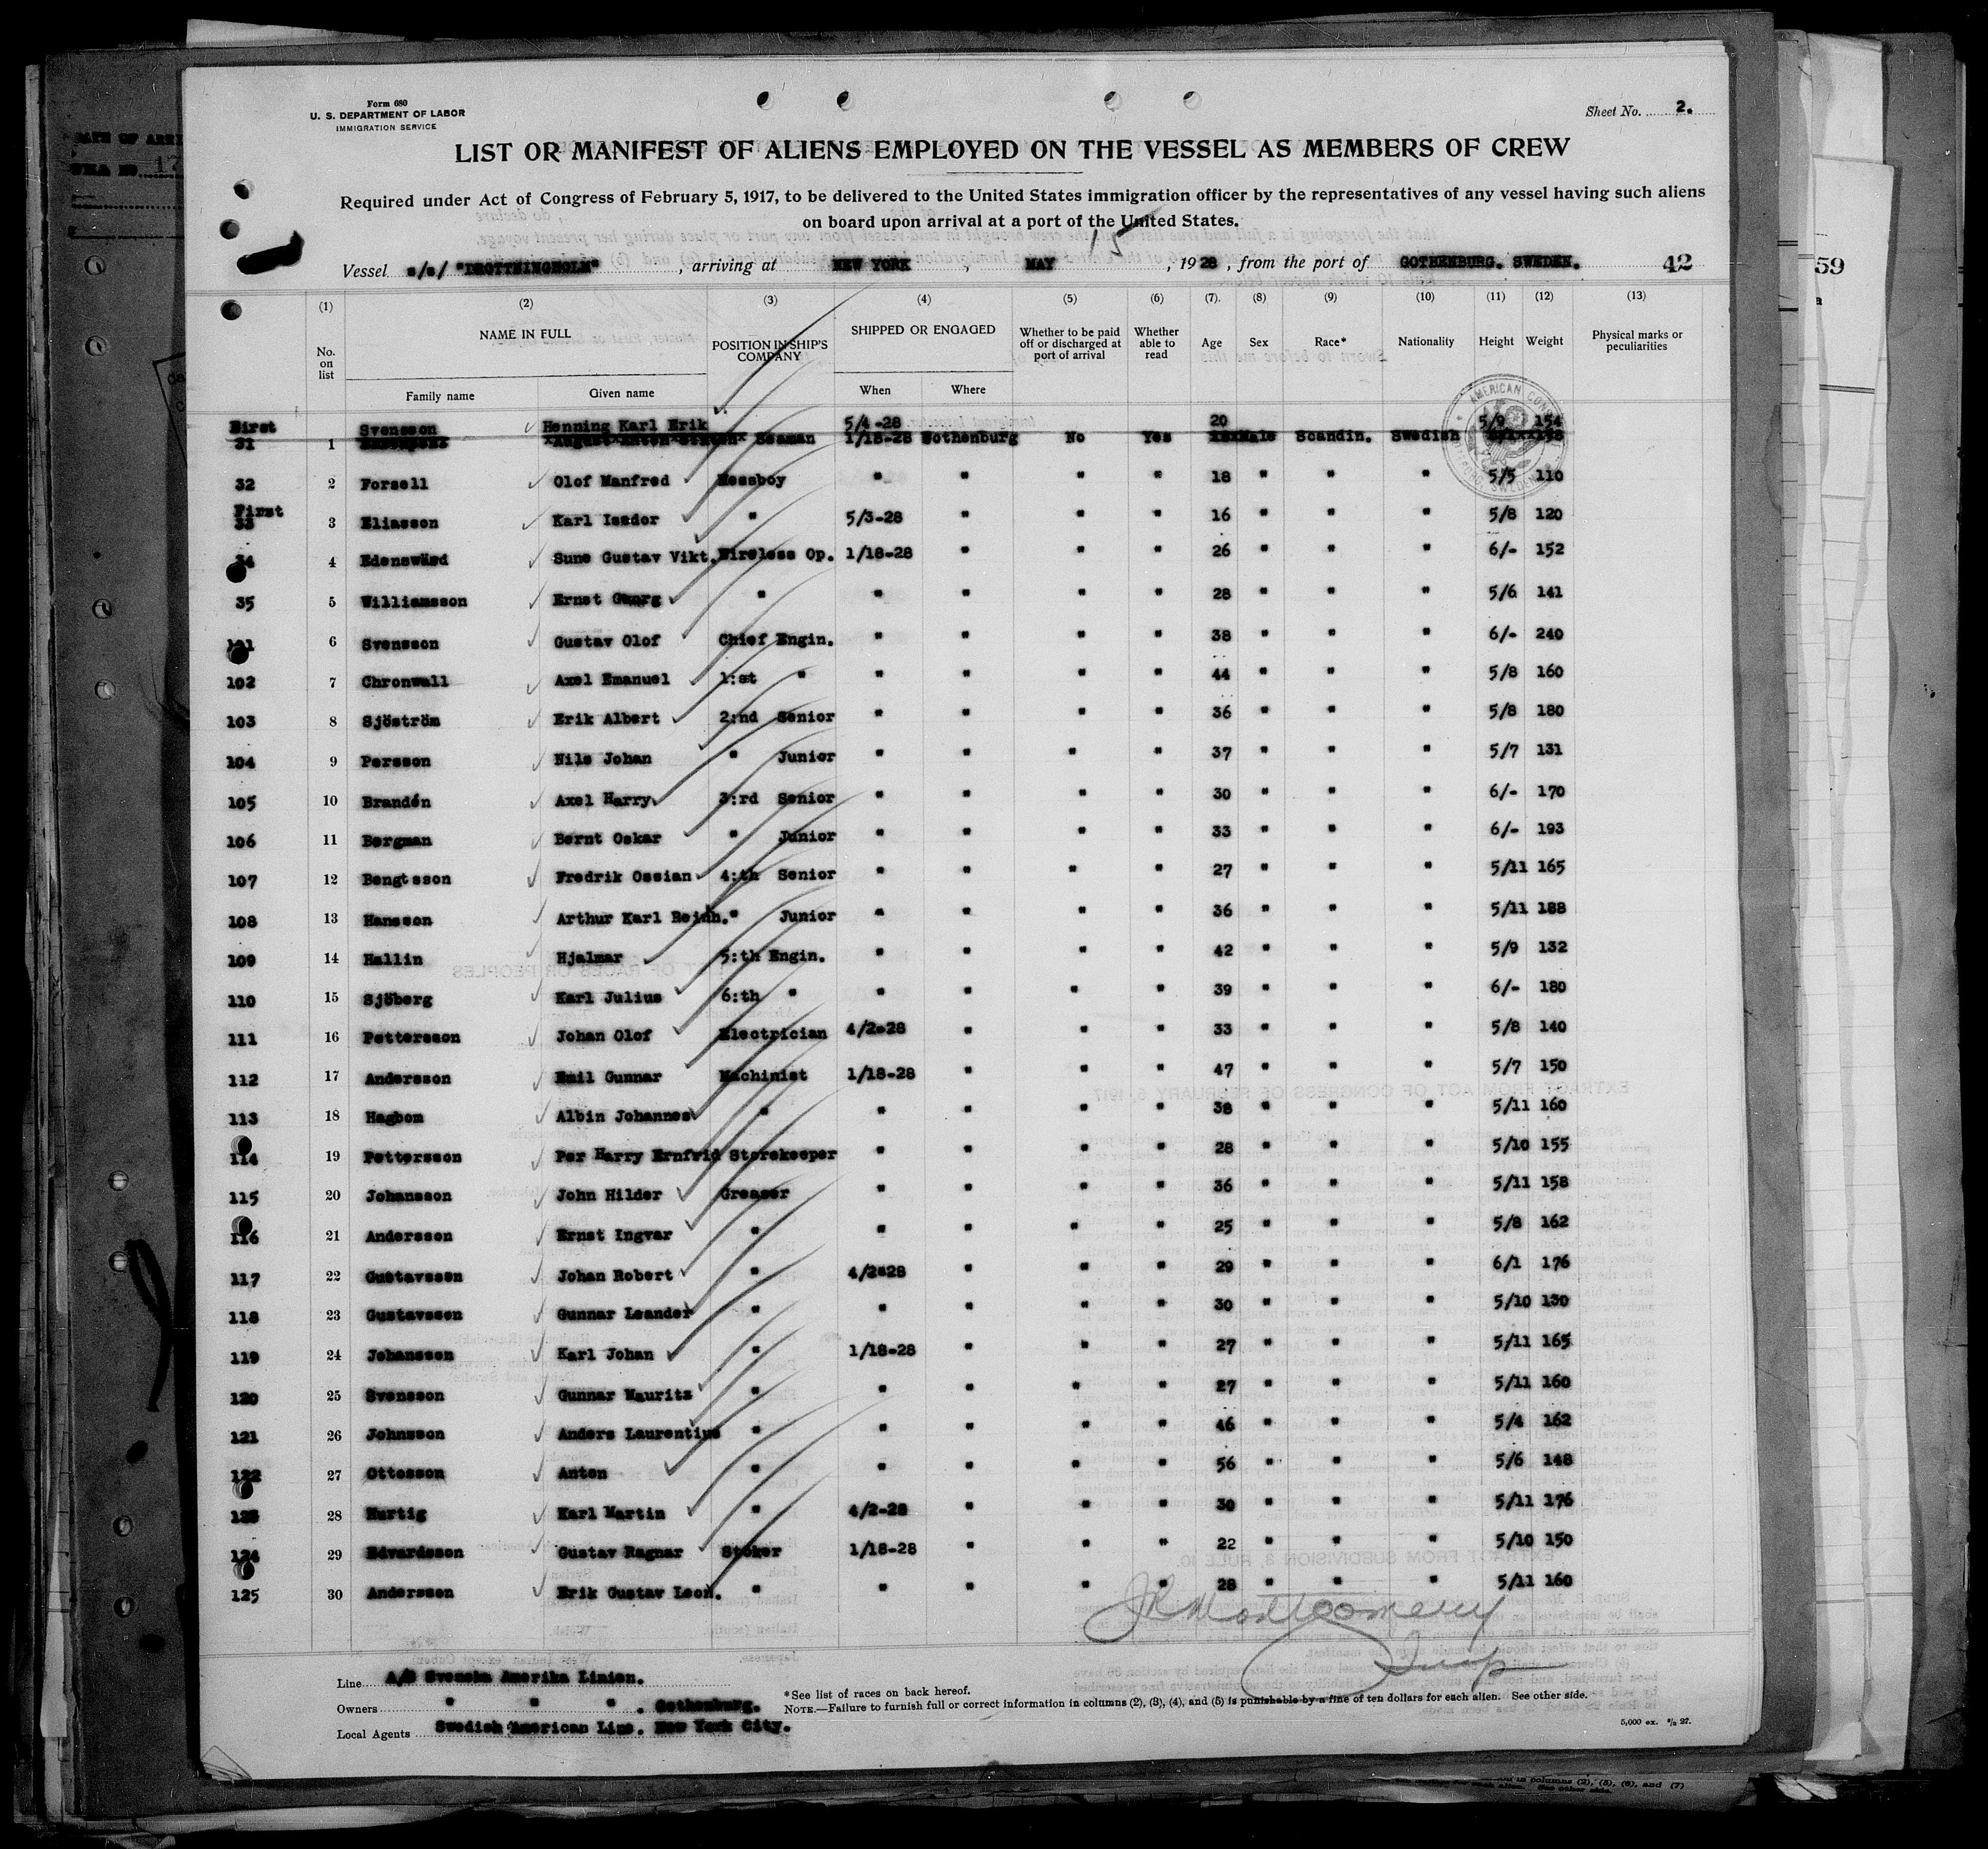 Form 680
U. S. DEPARTMENT OF LABOR
IMMIGRATION SERVICE
Sheet No. 2.
LIST OR MANIFEST OF ALIENS EMPLOYED ON THE VESSEL AS MEMBERS OF CREW
Required under Act of Congress of February 5, 1917, to be delivered to the United States immigration officer by the representatives of any vessel having such aliens
on board upon arrival at a port of the United States.
Vessel s/s/ "DROTTNINGHOLM", arriving at NEW YORK, MAY 15, 1928, from the port of GOTHENBURG. SWEDEN. 42
(1) (2) (3) (4) (5) (6) (7). (8) (9) (10) (11) (12) (13)
No. on list NAME IN FULL POSITION IN SHIP'S COMPANY SHIPPED OR ENGAGED Whether to be paid off or discharged at port of arrival Whether able to read Age Sex Race* Nationality Height Weight Physical marks or peculiarities
Family name Given name When Where
First Svensson Henning Karl Erik 5/4-28 20 5/9 154
31 1 Seaman 1/18-28 Gothenburg No Yes Male Scandin. Swedish
32 2 Forsell Olof Manfred Messboy " " " " 18 " " " 5/5 110
First
33 3 Eliasson Karl Isador " 5/3-28 " " " 16 " " " 5/8 120
34 4 Edenswärd Sune Gustav Vikt. Wireless Op. 1/18-28 " " " 26 " " " 6/- 152
35 5 Williamsson Ernst Georg " " " " " 28 " " " 5/6 141
101 6 Svensson Gustav Olof Chief Engin. " " " " 38 " " " 6/- 240
102 7 Chronwall Axel Emanuel 1:st " " " " " 44 " " " 5/8 160
103 8 Sjöström Erik Albert 2:nd Senior " " " " 36 " " " 5/8 180
104 9 Persson Nils Johan " Junior " " " " 37 " " " 5/7 131
105 10 Brandén Axel Harry 3:rd Senior " " " " 30 " " " 6/- 170
106 11 Bergman Bernt Oskar " Junior " " " " 33 " " " 6/- 193
107 12 Bengtsson Fredrik Ossian 4:th Senior " " " " 27 " " " 5/11 165
108 13 Hansson Arthur Karl Reinh. " Junior " " " " 36 " " " 5/11 188
109 14 Hallin Hjalmar 5:th Engin. " " " " 42 " " " 5/9 132
110 15 Sjöberg Karl Julius 6:th " " " " " 39 " " " 6/- 180
111 16 Pettersson Johan Olof Electrician 4/2-28 " " " 33 " " " 5/8 140
112 17 Andersson Emil Gunnar Machinist 1/18-28 " " " 47 " " " 5/7 150
113 18 Hagbom Albin Johannes " " " " " 38 " " " 5/11 160
114 19 Pettersson Per Harry Ernfrid Storekeeper " " " " 28 " " " 5/10 155
115 20 Johansson John Hilder Greaser " " " " 36 " " " 5/11 158
116 21 Andersson Ernst Ingvar " " " " " 25 " " " 5/8 162
117 22 Gustavsson Johan Robert " 4/2-28 " " " 29 " " " 6/1 176
118 23 Gustavsson Gunnar Leander " " " " " 30 " " " 5/10 130
119 24 Johansson Karl Johan " 1/18-28 " " " 27 " " " 5/11 165
120 25 Svensson Gunnar Mauritz " " " " " 27 " " " 5/11 160
121 26 Johnsson Anders Laurentius " " " " " 46 " " " 5/4 162
122 27 Ottosson Anton " " " " " 56 " " " 5/6 148
123 28 Hurtig Karl Martin " 4/2-28 " " " 30 " " " 5/11 176
124 29 Edvardsson Gustav Ragnar Stoker 1/18-28 " " " 22 " " " 5/10 150
125 30 Andersson Erik Gustav Leon. " " " " " 28 " " " 5/11 160
JR Montgomery
Insp
Line A/B Svenska Amerika Linien.
Owners " " " . Gothenburg.
Local Agents Swedish American Line. New York City.
*See list of races on back hereof.
NOTE.—Failure to furnish full or correct information in columns (2), (3), (4), and (5) is punishable by a fine of ten dollars for each alien. See other side.
5,000 ex. 27.
59